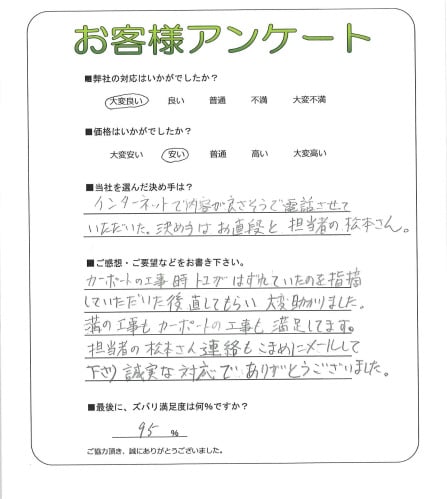 お客様アンケート
■弊社の対応はいかがでしたか？
大変良い 良い 普通 不満 大変不満
■価格はいかがでしたか？
大変安い 安い 普通 高い 大変高い
■当社を選んだ決め手は？
インターネットで内容が良さそうで電話させて
いただいた。決め手はお値段と担当者の松本さん。
■ご感想・ご要望などをお書き下さい。
カーポートの工事時トユがはずれていたのを指摘
していただいた後直してもらい大変助かりました。
溝の工事もカーポートの工事も満足してます。
担当者の松本さん連絡もこまめにメールして
下さり誠実な対応でありがとうございました。
■最後に、ズバリ満足度は何%ですか？
95 %
ご協力頂き、誠にありがとうございました。